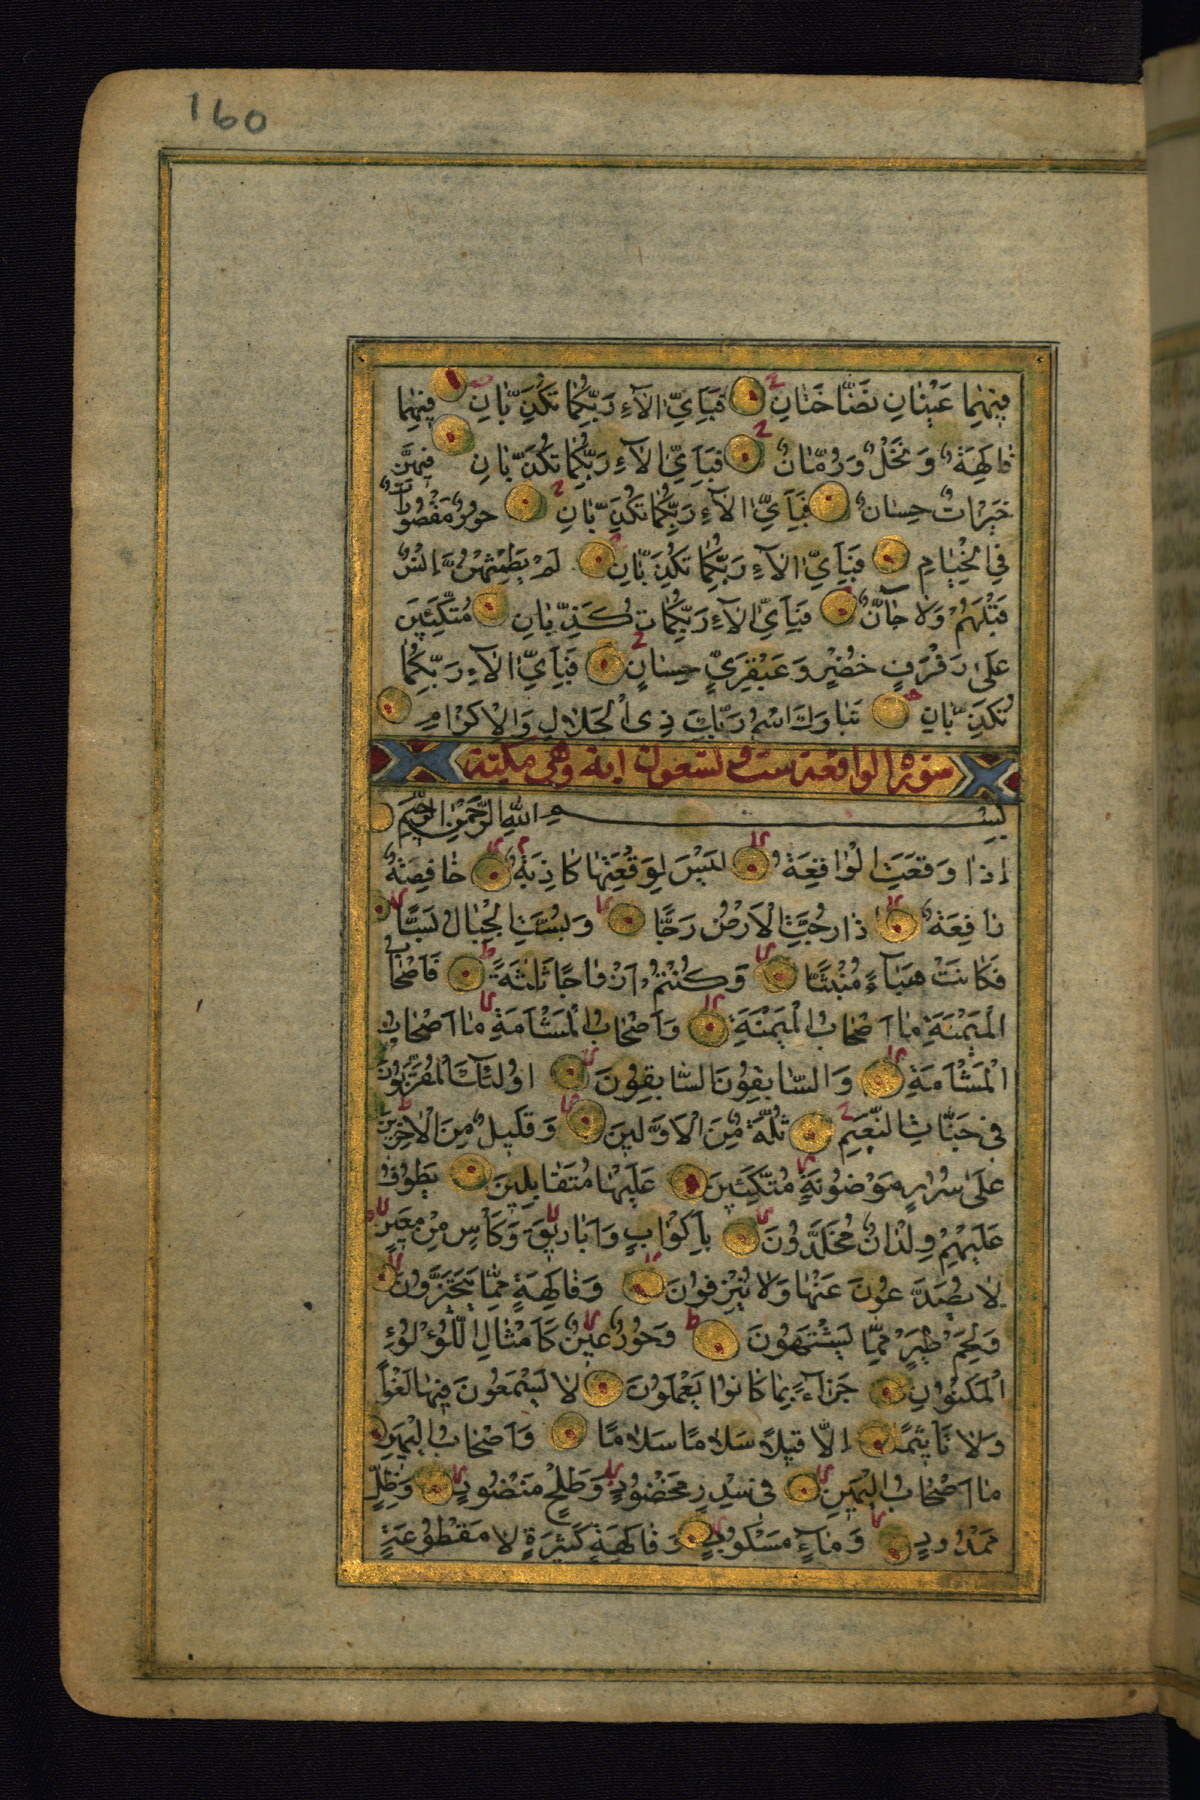 160
فِيهِمَا عَيْنَانِ نَضَّاخَتَانِ فَبِأَيِّ الآءِ رَبِّكُمَا تُكَذِّبَانِ فِيهِمَا
فَاكِهَةٌ وَنَخْلٌ وَرُمَّانٌ فَبِأَيِّ الآءِ رَبِّكُمَا تُكَذِّبَانِ فِيهِنَّ
خَيْرَاتٌ حِسَانٌ فَبِأَيِّ الآءِ رَبِّكُمَا تُكَذِّبَانِ حُورٌ مَقْصُورَاتٌ
فِي الْخِيَامِ فَبِأَيِّ الآءِ رَبِّكُمَا تُكَذِّبَانِ لَمْ يَطْمِثْهُنَّ إِنْسٌ
قَبْلَهُمْ وَلَا جَآنٌّ فَبِأَيِّ الآءِ رَبِّكُمَا تُكَذِّبَانِ مُتَّكِئِينَ
عَلَى رَفْرَفٍ خُضْرٍ وَعَبْقَرِيٍّ حِسَانٍ فَبِأَيِّ الآءِ رَبِّكُمَا
تُكَذِّبَانِ تَبَارَكَ اسْمُ رَبِّكَ ذِي الْجَلَالِ وَالْإِكْرَامِ
سورة الواقعة ست وتسعون اية وهي مكية
بِسْمِ اللهِ الرَّحْمَنِ الرَّحِيمِ
اِذَا وَقَعَتِ الْوَاقِعَةُ لَيْسَ لِوَقْعَتِهَا كَاذِبَةٌ خَافِضَةٌ
رَافِعَةٌ اذَا رُجَّتِ الْأَرْضُ رَجًّا وَبُسَّتِ الْجِبَالُ بَسًّا
فَكَانَتْ هَبَآءً مُنْبَثًّا وَكُنْتُمْ اَزْوَاجًا ثَلَاثَةً فَاَصْحَابُ
الْمَيْمَنَةِ مَا اَصْحَابُ الْمَيْمَنَةِ وَاَصْحَابُ الْمَشْاَمَةِ مَا اَصْحَابُ
الْمَشْاَمَةِ وَالسَّابِقُونَ السَّابِقُونَ اُولَئِكَ الْمُقَرَّبُونَ
فِي جَنَّاتِ النَّعِيمِ ثُلَّةٌ مِنَ الْاَوَّلِينَ وَقَلِيلٌ مِنَ الْاٰخِرِينَ
عَلَى سُرُرٍ مَوْضُونَةٍ مُتَّكِئِينَ عَلَيْهَا مُتَقَابِلِينَ يَطُوفُ
عَلَيْهِمْ وِلْدَانٌ مُخَلَّدُونَ بِاَكْوَابٍ وَاَبَارِيقَ وَكَاْسٍ مِنْ مَعِينٍ
لَا يُصَدَّعُونَ عَنْهَا وَلَا يُنْزِفُونَ وَفَاكِهَةٍ مِمَّا يَتَخَيَّرُونَ
وَلَحْمِ طَيْرٍ مِمَّا يَشْتَهُونَ وَحُورٌ عِينٌ كَاَمْثَالِ اللُّؤْلُؤِ
الْمَكْنُونِ جَزَآءً بِمَا كَانُوا يَعْمَلُونَ لَا يَسْمَعُونَ فِيهَا لَغْوًا
وَلَا تَأْثِيمًا اِلَّا قِيلًا سَلَامًا سَلَامًا وَاَصْحَابُ الْيَمِينِ
مَا اَصْحَابُ الْيَمِينِ فِي سِدْرٍ مَخْضُودٍ وَطَلْحٍ مَنْضُودٍ وَظِلٍّ
مَمْدُودٍ وَمَآءٍ مَسْكُوبٍ وَفَاكِهَةٍ كَثِيرَةٍ لَا مَقْطُوعَةٍ